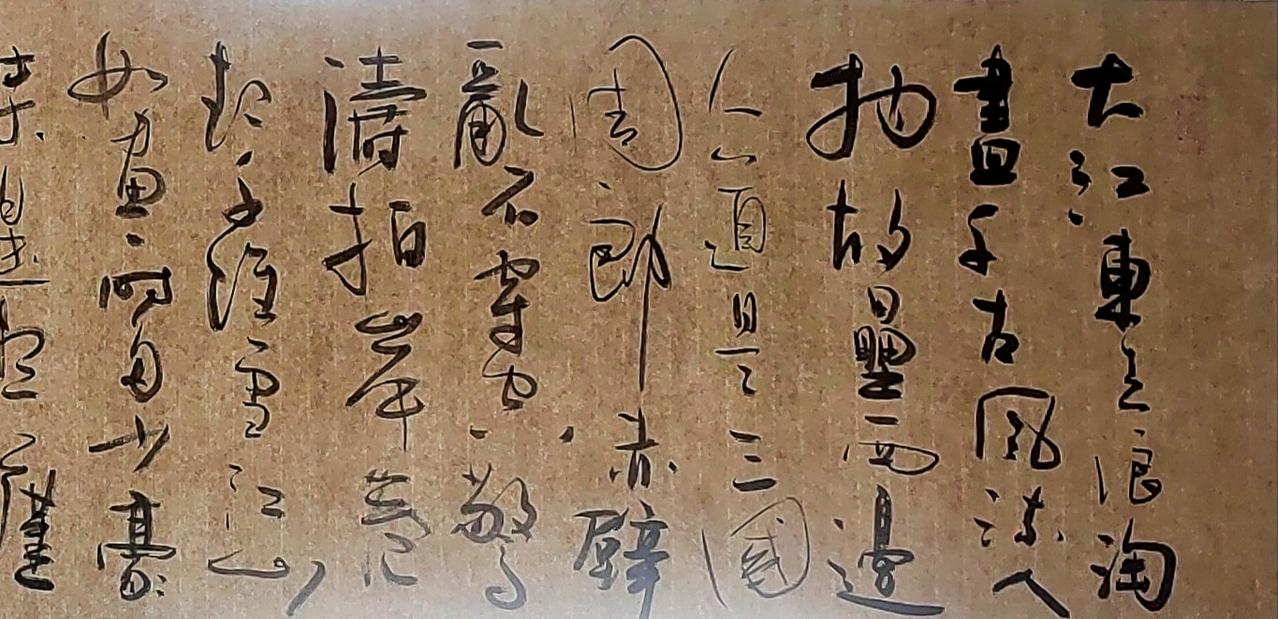 大江東去浪淘
盡千古風流人
物故壘西邊
人道是三國
周郎赤壁
亂石穿空驚
濤拍岸卷
起千堆雪江山
如畫一時多少豪